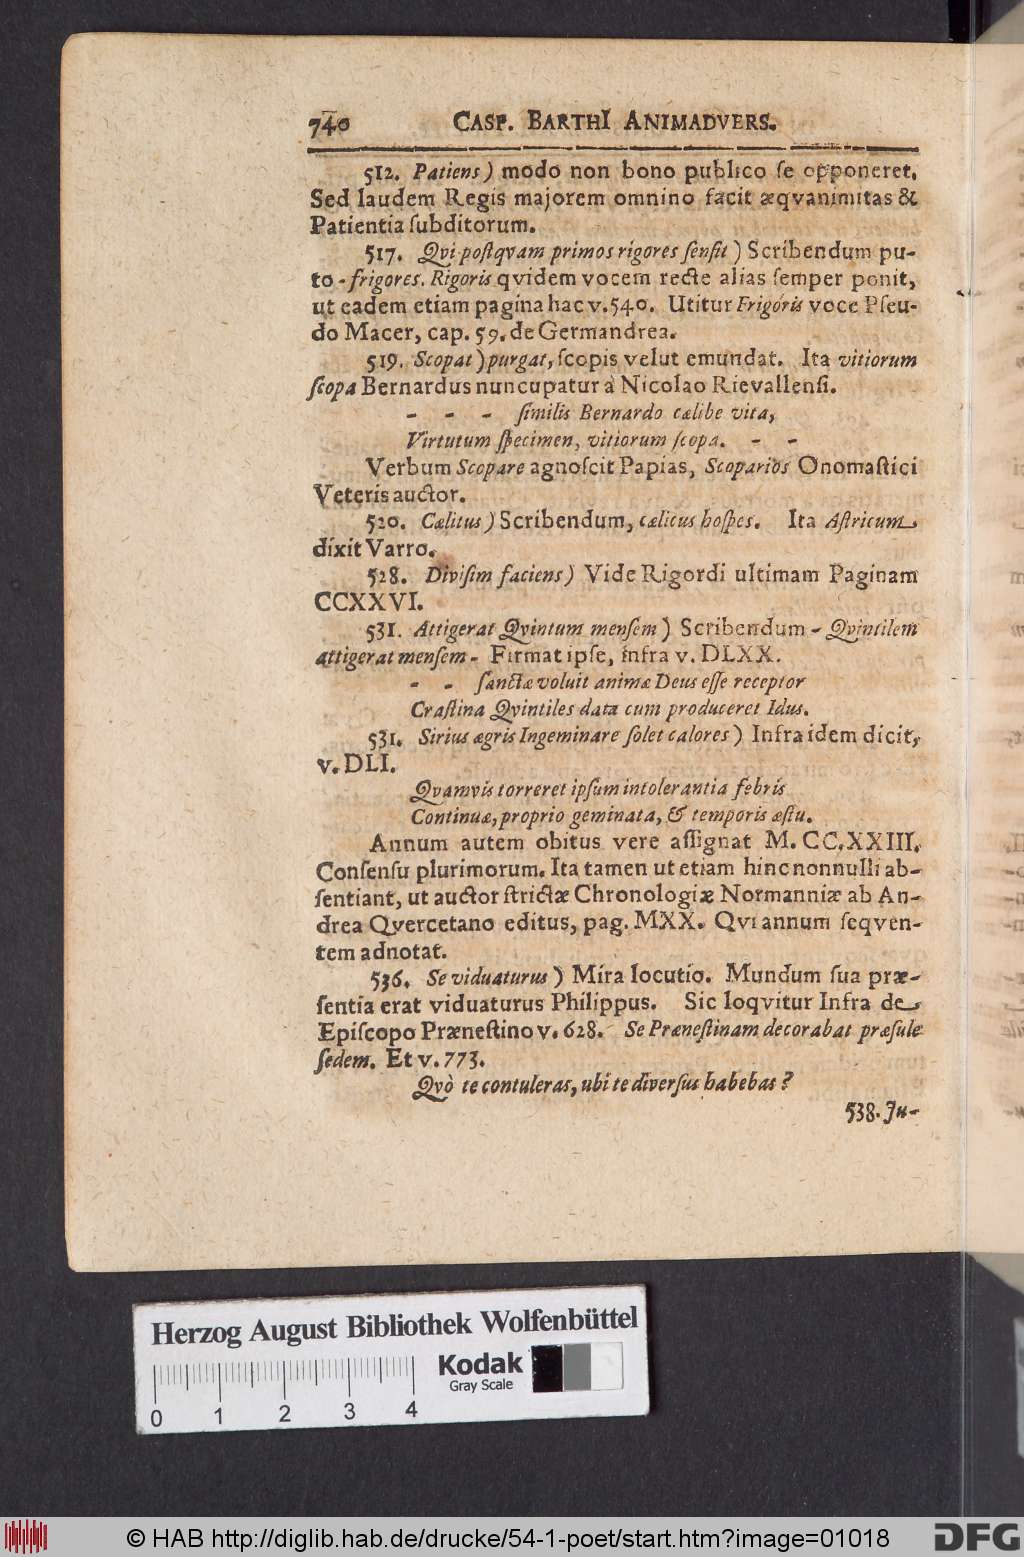 740 CASP. BARTHI ANIMADVERS.
512. Patiens) modo non bono publico ſe opponeret.
Sed laudem Regis majorem omnino facit æqvanimitas &
Patientia ſubditorum.
517. Qvi poſtqvam primos rigores ſenſit) Scribendum pu-
to - frigores. Rigoris qvidem vocem recte alias ſemper ponit,
ut eadem etiam pagina hac v. 540. Utitur Frigóris voce Pſeu-
do Macer, cap. 59. de Germandrea.
519. Scopat) purgat, ſcopis velut emundat. Ita vitiorum
ſcopa Bernardus nuncupatur à Nicolao Rievallenſi.
- - - ſimilis Bernardo cælibe vita,
Virtutum ſpecimen, vitiorum ſcopa. - -
Verbum Scopare agnoſcit Papias, Scoparios Onomaſtici
Veteris auctor.
520. Cælitus) Scribendum, cælicus hoſpes. Ita Aſtricum
dixit Varro.
528. Diviſim faciens) Vide Rigordi ultimam Paginam
CCXXVI.
531. Attigerat Qvintum menſem) Scribendum - Qvintilem
attigerat menſem - Firmat ipſe, infra v. DLXX.
- - ſanctæ voluit animæ Deus eſſe receptor
Craſtina Qvintiles data cum produceret Idus.
531. Sirius ægris Ingeminare ſolet calores) Infra idem dicit,
v. DLI.
Qvamvis torreret ipſum intolerantia febris
Continuæ, proprio geminata, & temporis æſtu.
Annum autem obitus vere aſſignat M. CC. XXIII.
Conſenſu plurimorum. Ita tamen ut etiam hinc nonnulli ab-
ſentiant, ut auctor ſtrictæ Chronologiæ Normanniæ ab An-
drea Qvercetano editus, pag. MXX. Qvi annum ſeqven-
tem adnotat.
536. Se viduaturus) Mira locutio. Mundum ſua præ-
ſentia erat viduaturus Philippus. Sic loqvitur Infra de
Epiſcopo Præneſtino v. 628. Se Præneſtinam decorabat præſule
ſedem. Et v. 773.
Qvò te contuleras, ubi te diverſus habebas?
538. Ju-
Herzog August Bibliothek Wolfenbüttel
Kodak
Gray Scale
0 1 2 3 4
© HAB http://diglib.hab.de/drucke/54-1-poet/start.htm?image=01018
DFG